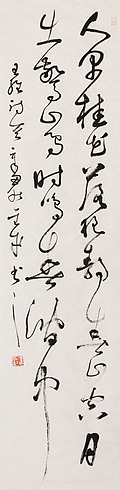 人閒桂花落夜靜春山空月
出驚山鳥時鳴春澗中
王維詩